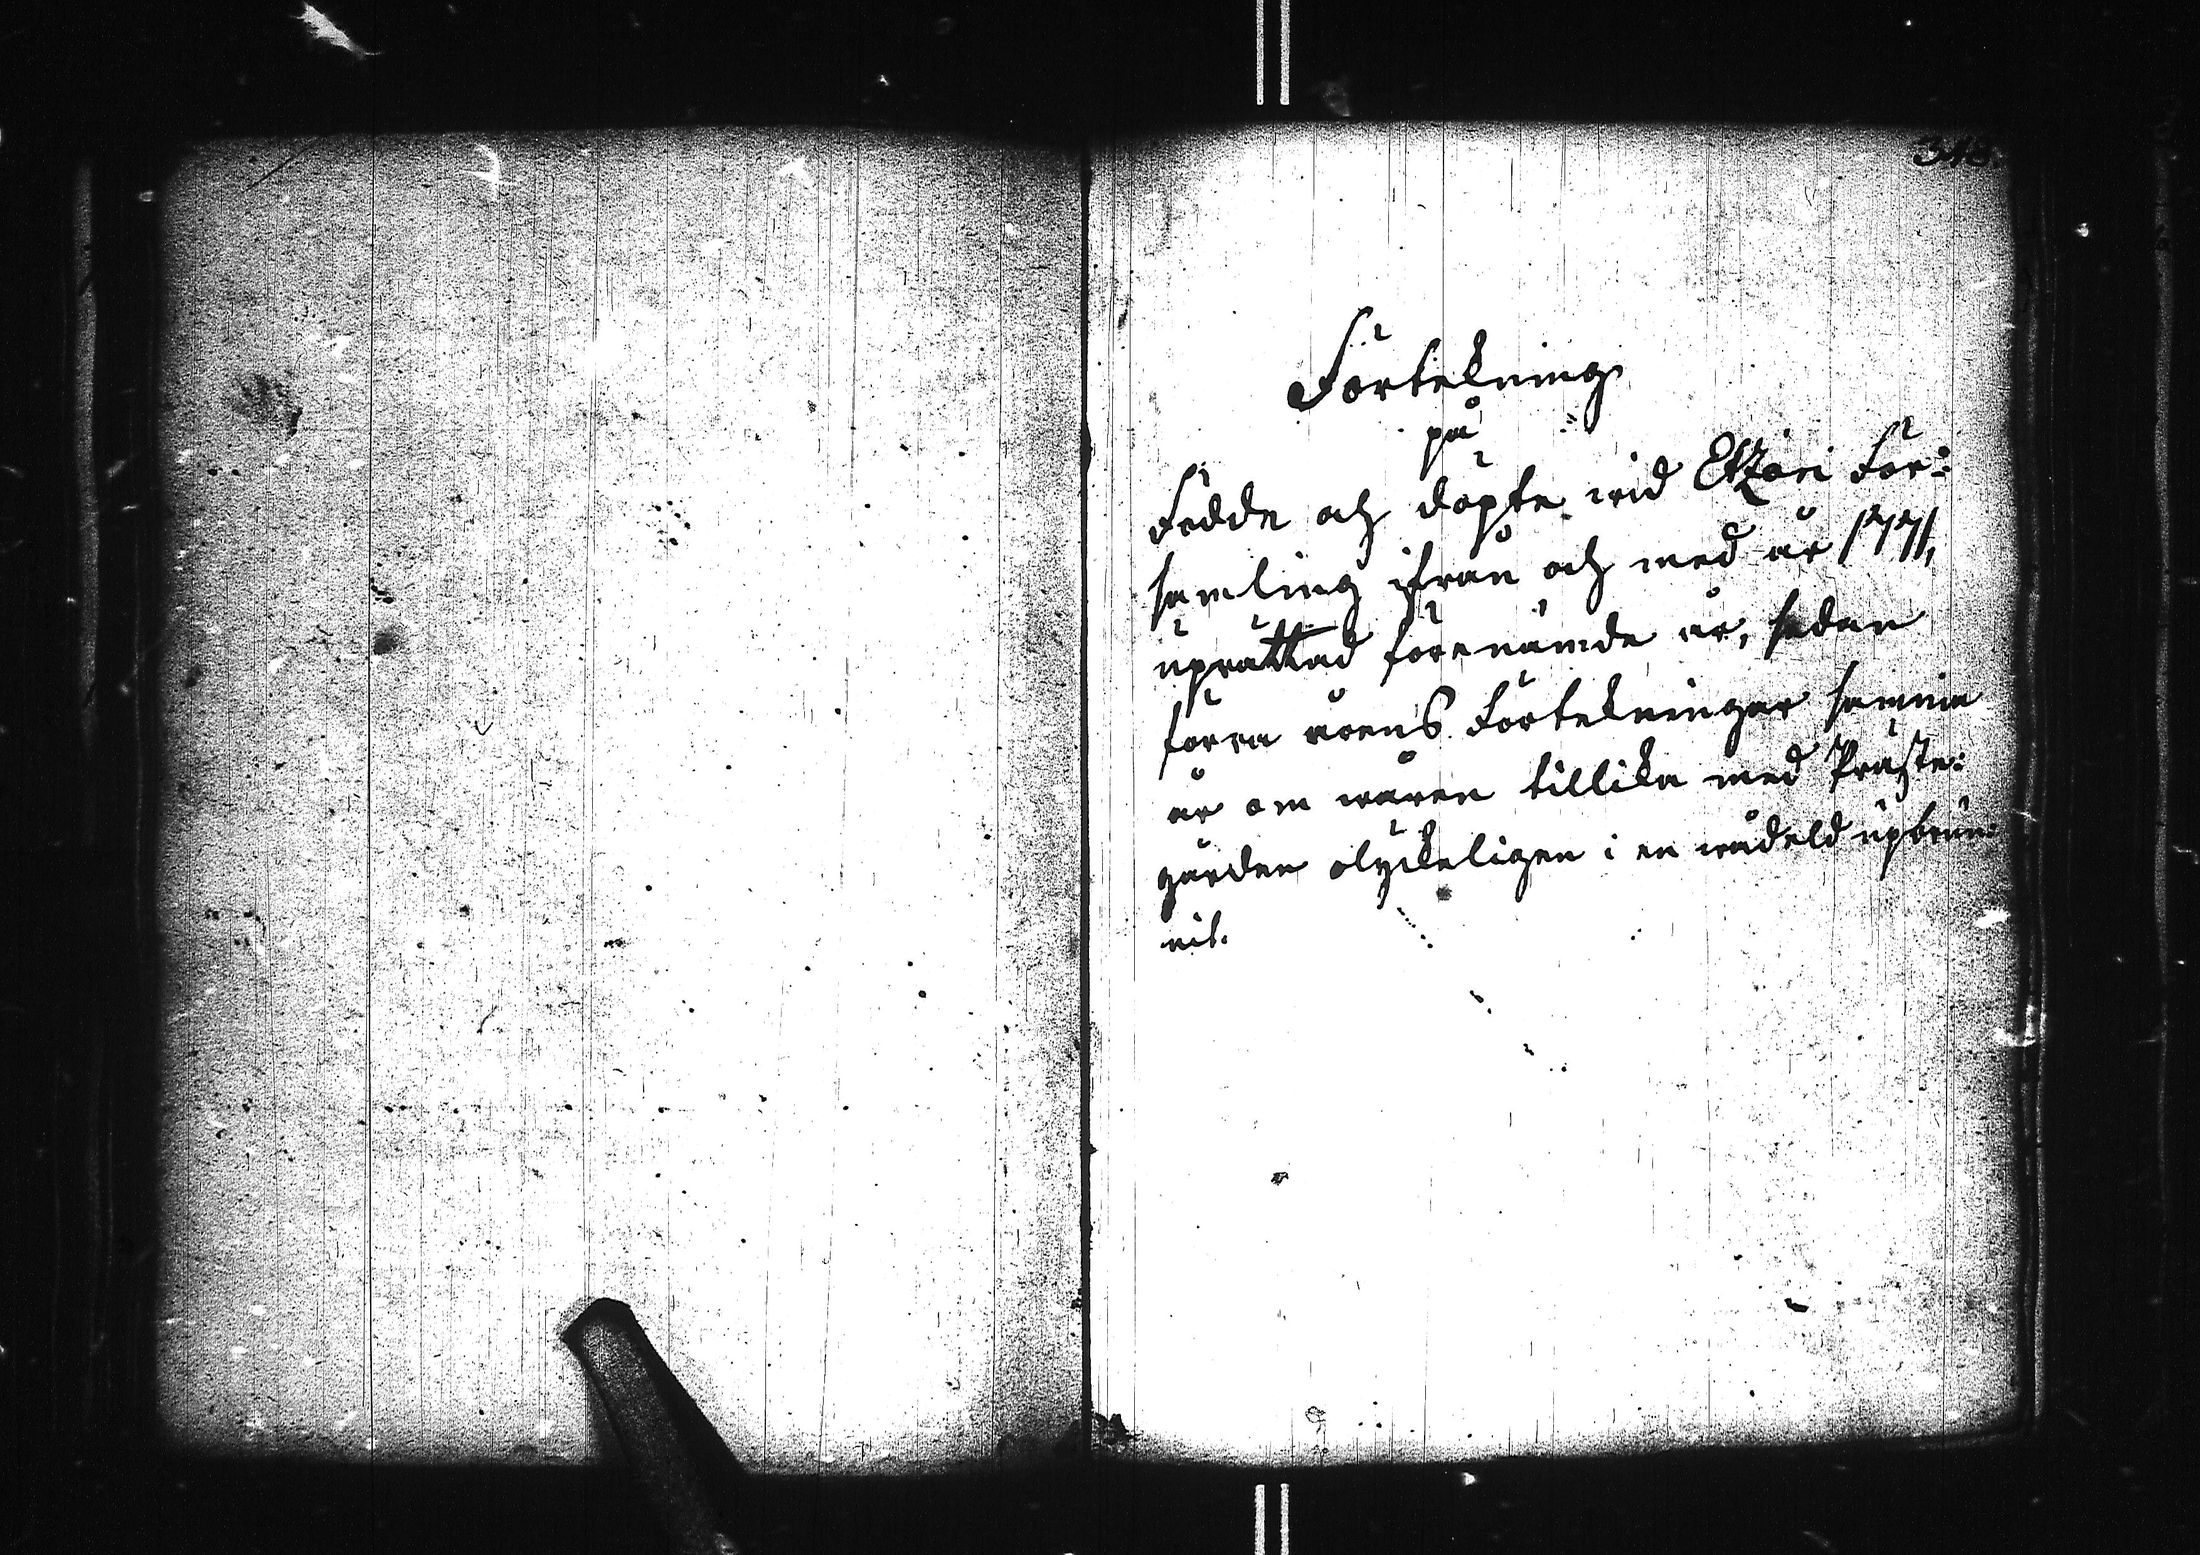 Förtekning
på
Födde och döpte wid Etzeri För:
samling ifrån och med år 1771,
uprättad förenämde år, sedan
förra årens Förtekningar samma
år om wåren tillika med Präste:
gården olyckeligen i en wådeld upbrun:
nit.